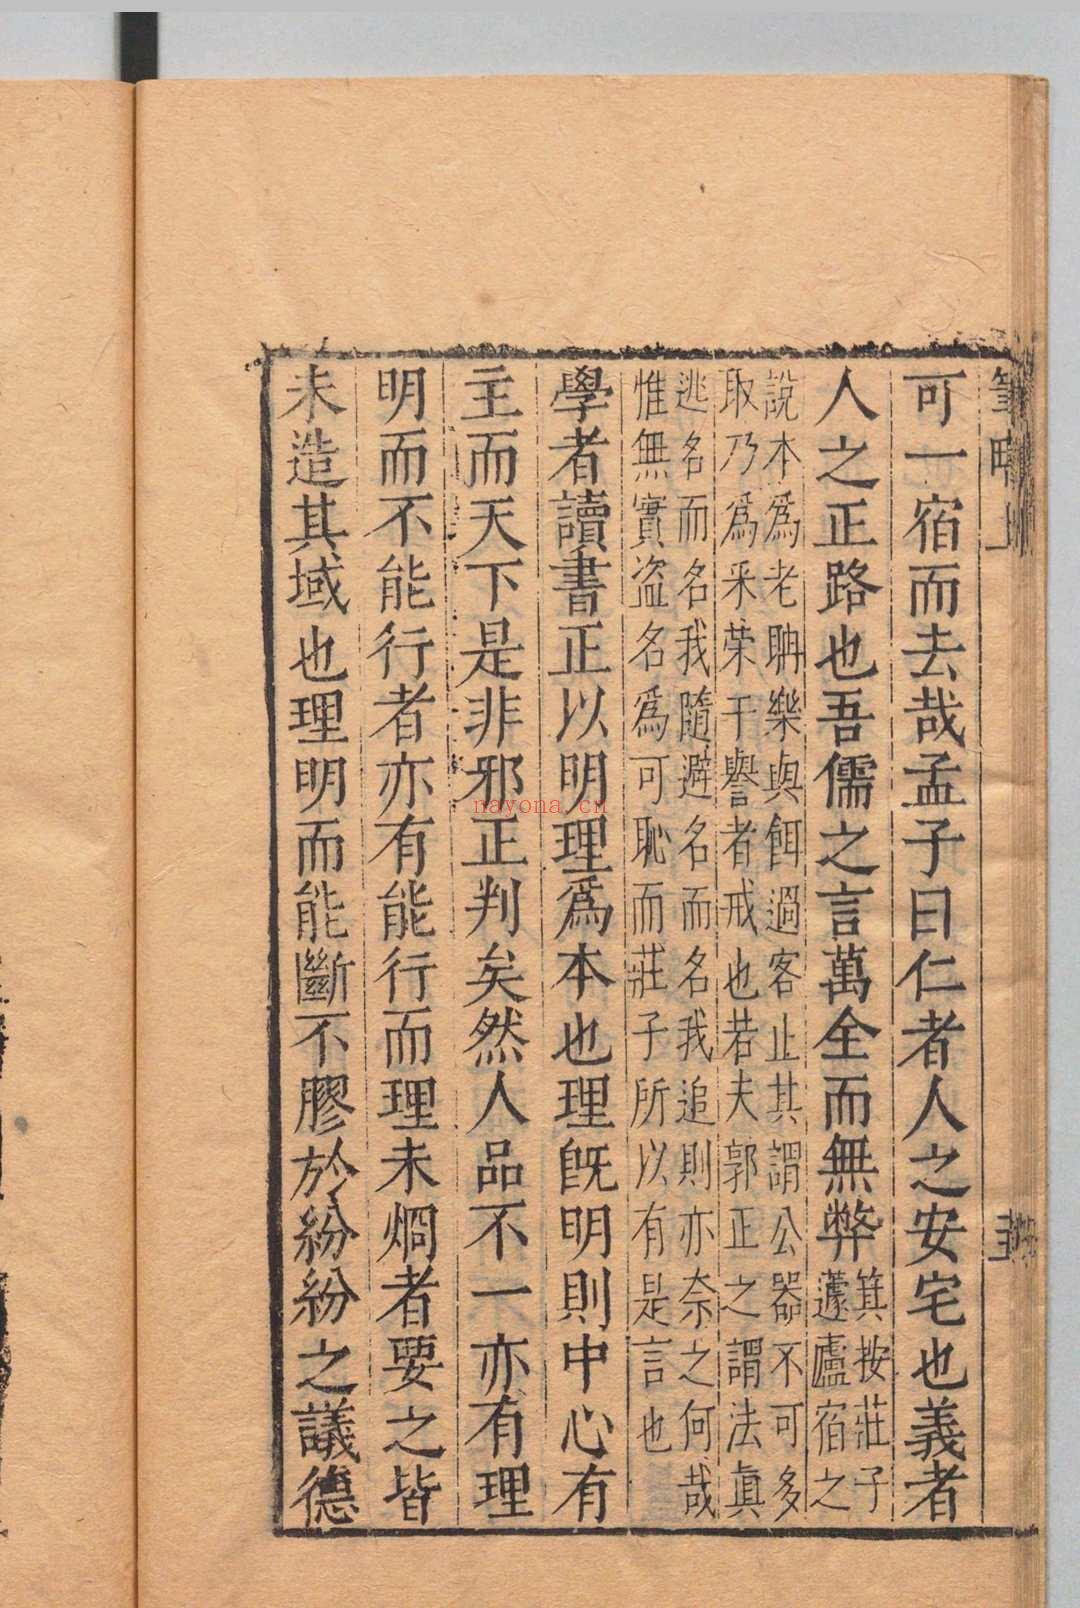 筆疇上
可一宿而去哉孟子曰仁者人之安宅也義者
人之正路也吾儒之言萬全而無弊
箕按莊子
蘧廬宿之
說本爲老聃樂與餌過客止其謂公器不可多
取乃爲釆荣干譽者戒也若夫郭正之謂法眞
逃名而名我隨避名而名我追則亦奈之何哉
惟無實盜名爲可恥而莊子所以有是言也
學者讀書正以明理爲本也理旣明則中心有
主而天下是非邪正判矣然人品不一亦有理
明而不能行者亦有能行而理未烱者要之皆
未造其域也理明而能斷不膠於紛紛之議德
nayona.cn